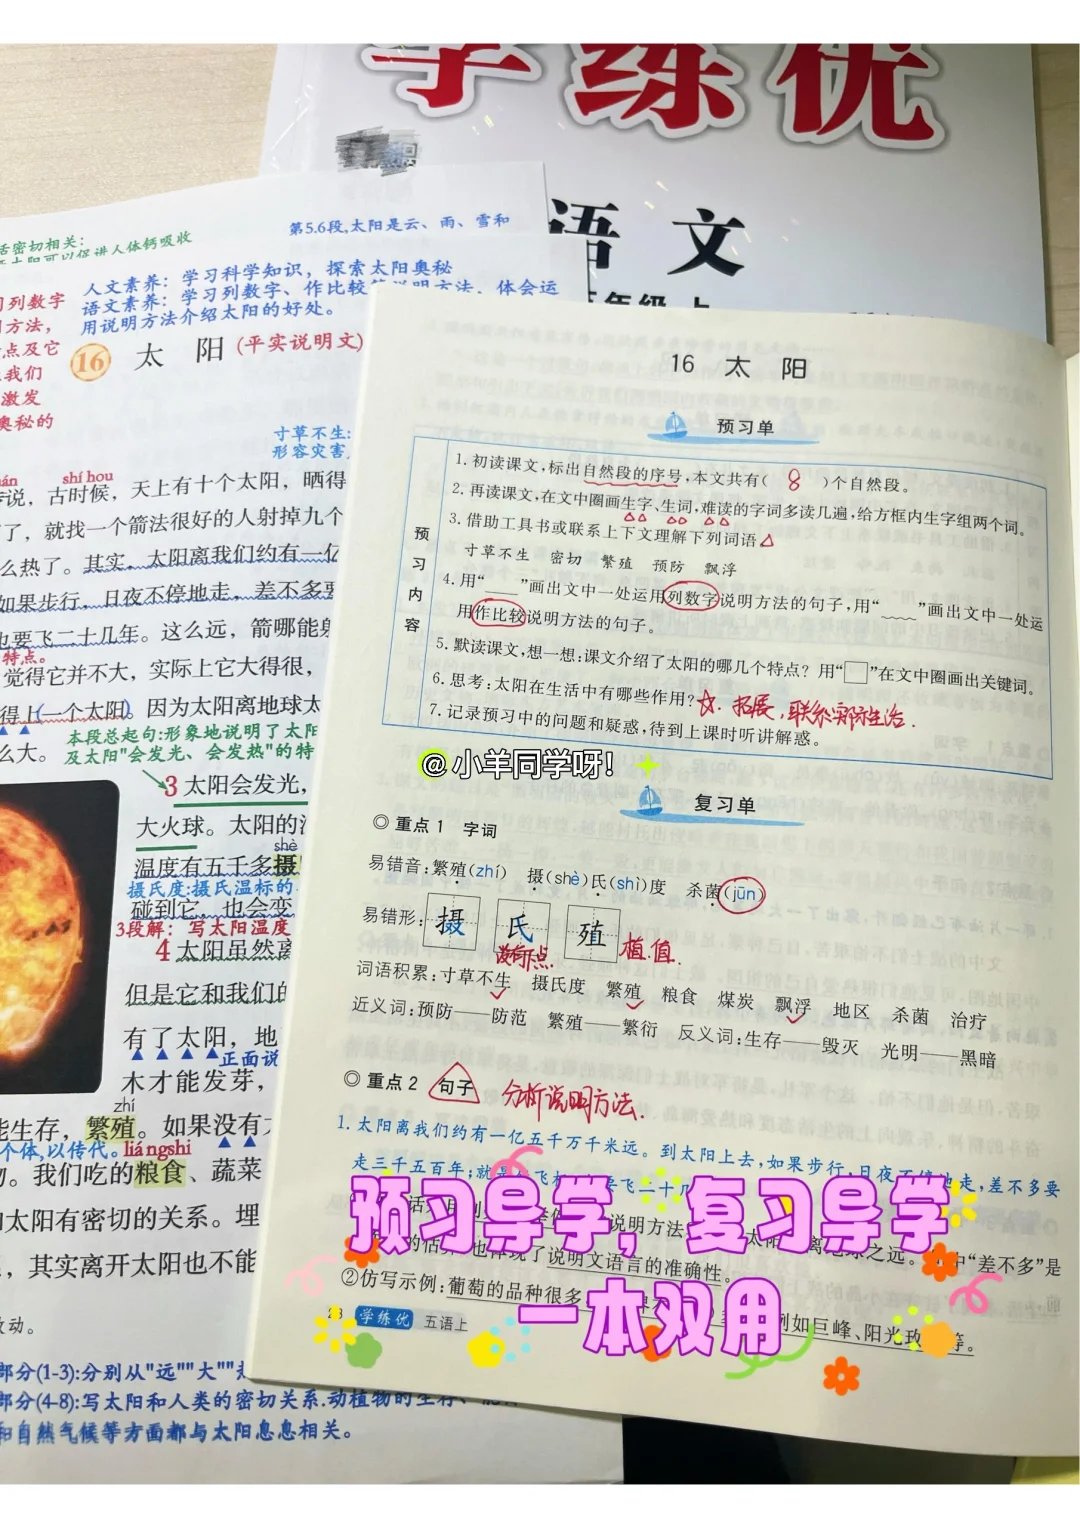 学练优
语文
五年级 上
活密切相关:
第5.6段,太阳是云、雨、雪和
人文素养：学习科学知识，探索太阳奥秘
语文素养：学习列数字、作比较等说明方法，体会运
用说明方法介绍太阳的好处。
习列数字
方法,
点及它
我们
激发
奥秘的
16 太 阳 (平实说明文)
寸草不生:
形容灾害
shí hou
传说，古时候，天上有十个太阳，晒得
了，就找一个箭法很好的人射掉九个
么热了。其实，太阳离我们约有一亿
如果步行，日夜不停地走，差不多要
也要飞二十几年。这么远，箭哪能射
特点。
觉得它并不大，实际上它大得很，
得上一个太阳。因为太阳离地球太
么大。
本段总起句:形象地说明了太阳
及太阳"会发光、会发热"的特
3 太阳会发光，
大火球。太阳的
shè
温度有五千多摄
摄氏度:摄氏温标的
碰到它，也会变
3段解：写太阳温度
4 太阳虽然离
但是它和我们的
有了太阳，地
正面说
木才能发芽，
zhí
能生存，繁殖。如果没有
个体,以传代。 liáng shi
。我们吃的粮食、蔬菜
太阳有密切的关系。埋
，其实离开太阳也不能
动。
部分(1-3):分别从"远""大"
部分(4-8):写太阳和人类的密切关系.动植物的生存、
和自然气候等方面都与太阳息息相关。
16 太 阳
预习单
预习内容
1.初读课文,标出自然段的序号,本文共有( 8 )个自然段。
2.再读课文,在文中圈画生字、生词,难读的字词多读几遍,给方框内生字组两个词。
3.借助工具书或联系上下文理解下列词语
寸草不生 密切 繁殖 预防 飘浮
4.用“____”画出文中一处运用列数字说明方法的句子,用“﹏﹏”画出文中一处运
用作比较说明方法的句子。
5.默读课文,想一想:课文介绍了太阳的哪几个特点？用“□”在文中圈画出关键词。
6.思考:太阳在生活中有哪些作用? ☆.拓展,联系实际生活.
7.记录预习中的问题和疑惑,待到上课时听讲解惑。
@小羊同学呀！
复习单
◎ 重点1 字词
易错音:繁殖(zhí) 摄(shè)氏(shì)度 杀菌(jūn)
易错形: 摄 氏 殖 植.值.
没有点
词语积累:寸草不生 摄氏度 繁殖 粮食 煤炭 飘浮 地区 杀菌 治疗
近义词:预防——防范 繁殖——繁衍 反义词:生存——毁灭 光明——黑暗
◎ 重点2 句子 分析说明方法.
1.太阳离我们约有一亿五千万千米远。到太阳上去,如果步行,日夜不停地走,差不多要
走三千五百年;就是坐飞机,也要飞二十几
说明方法 太阳离地球之远。 中“差不多”是
的估 也体现了说明文语言的准确性。
②仿写示例:葡萄的品种很多 例如巨峰、阳光玫 等。
预习导学，复习导学
一本双用
学练优 五语上